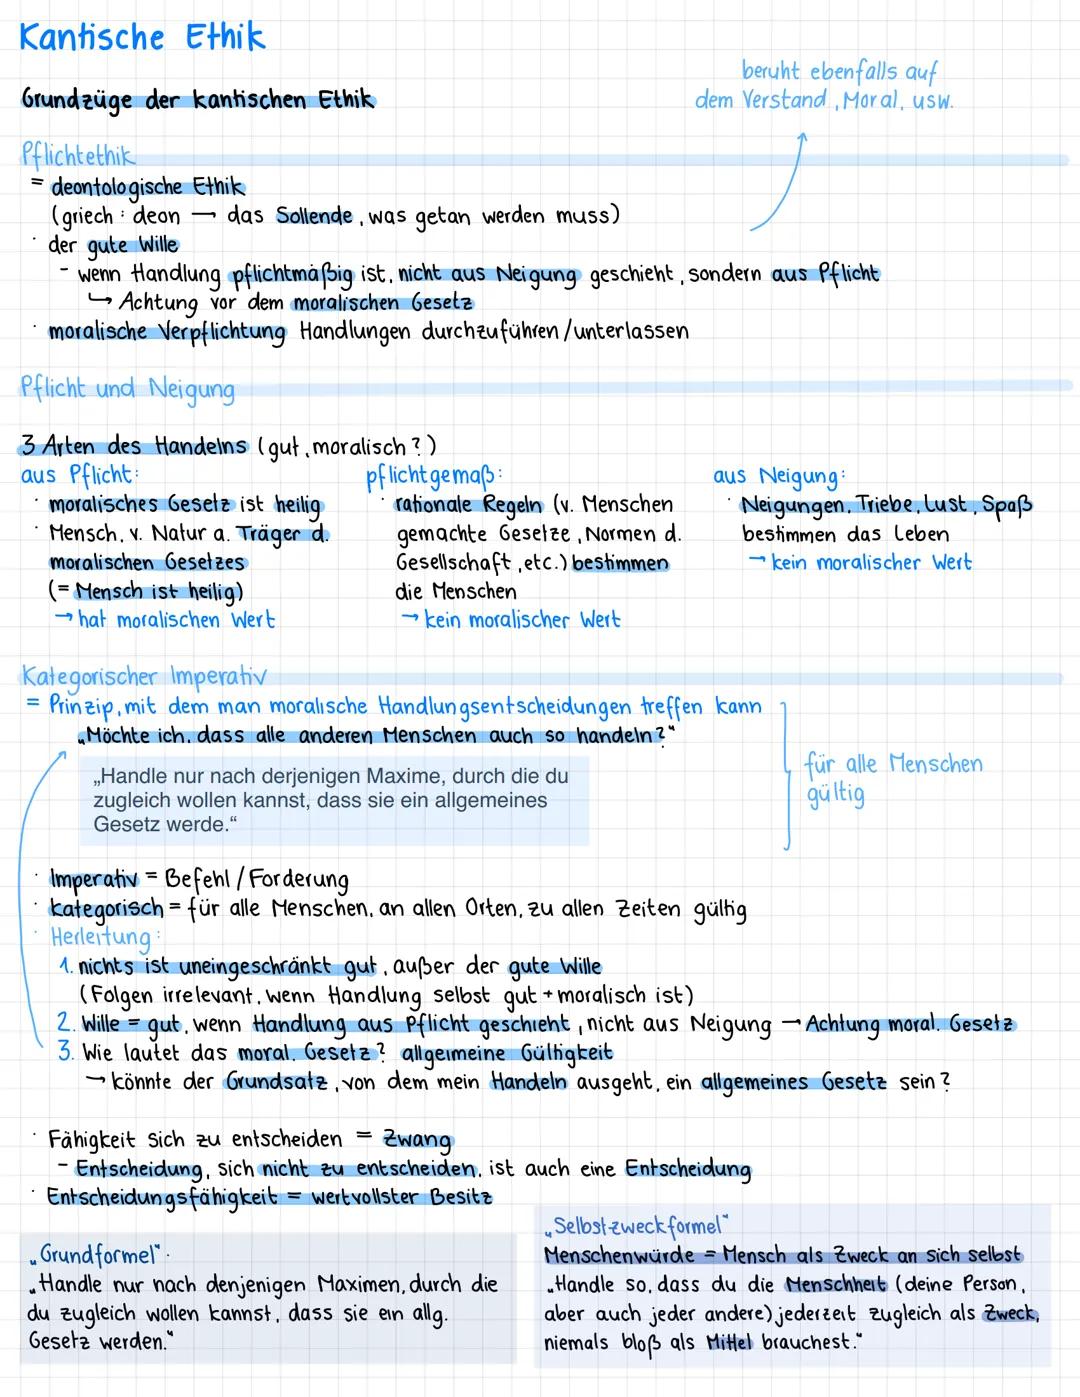 Kantische Ethik
beruht ebenfalls auf
dem Verstand, Moral, usw.
Grundzüge der kantischen Ethik
Pflichtethik
= deontologische Ethik
(griech: deon → das Sollende, was getan werden muss)
· der gute Wille
- wenn Handlung pflichtmäßig ist, nicht aus Neigung geschieht, sondern aus Pflicht
↳ Achtung vor dem moralischen Gesetz
· moralische Verpflichtung Handlungen durchzuführen/unterlassen
Pflicht und Neigung
3 Arten des Handelns (gut, moralisch?)
aus Pflicht:
· moralisches Gesetz ist heilig
· Mensch, v. Natur a. Träger d.
moralischen Gesetzes
(= Mensch ist heilig)
→ hat moralischen Wert
pflichtgemäß:
· rationale Regeln (v. Menschen
gemachte Gesetze, Normen d.
Gesellschaft, etc.) bestimmen
die Menschen
→ kein moralischer Wert
aus Neigung:
· Neigungen, Triebe, Lust, Spaß
bestimmen das Leben
→ kein moralischer Wert
Kategorischer Imperativ
= Prinzip, mit dem man moralische Handlungsentscheidungen treffen kann
„Möchte ich, dass alle anderen Menschen auch so handeln?"
„Handle nur nach derjenigen Maxime, durch die du
zugleich wollen kannst, dass sie ein allgemeines
Gesetz werde.“
für alle Menschen
gültig
· Imperativ = Befehl / Forderung
· kategorisch = für alle Menschen, an allen Orten, zu allen Zeiten gültig
· Herleitung:
1. nichts ist uneingeschränkt gut, außer der gute Wille
(Folgen irrelevant, wenn Handlung selbst gut + moralisch ist)
2. Wille = gut, wenn Handlung aus Pflicht geschieht, nicht aus Neigung → Achtung moral. Gesetz
3. Wie lautet das moral. Gesetz? allgemeine Gültigkeit
→ könnte der Grundsatz, von dem mein Handeln ausgeht, ein allgemeines Gesetz sein?
· Fähigkeit sich zu entscheiden = Zwang
- Entscheidung, sich nicht zu entscheiden, ist auch eine Entscheidung
· Entscheidungsfähigkeit = wertvollster Besitz
„Grundformel":
„Handle nur nach denjenigen Maximen, durch die
du zugleich wollen kannst, dass sie ein allg.
Gesetz werden."
„Selbstzweckformel"
Menschenwürde = Mensch als Zweck an sich selbst
„Handle so, dass du die Menschheit (deine Person,
aber auch jeder andere) jederzeit zugleich als Zweck,
niemals bloß als Mittel brauchest."